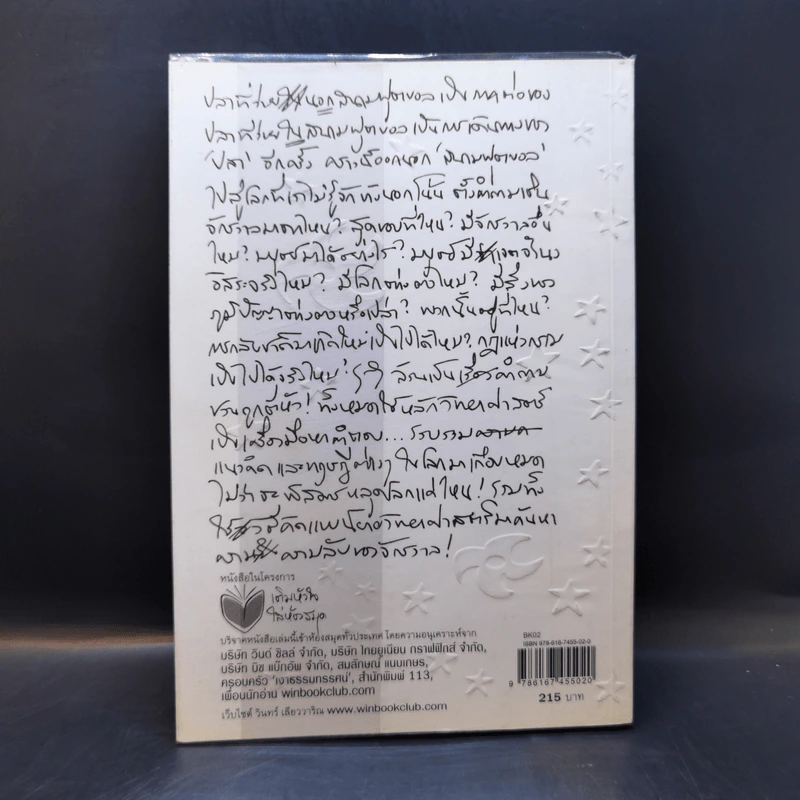 ปลาที่ว่ายนอกสนามฟุตบอล เป็นภาคต่อของ
ปลาที่ว่ายในสนามฟุตบอล เป็นการเดินทางของ
'ปลา' อีกครั้ง คราวนี้ออกนอก 'สนามฟุตบอล'
ไปสู่โลกที่เราไม่รู้จักข้างนอกโน้น ตั้งคำถามเช่น
จักรวาลมาจากไหน? สุดขอบที่ไหน? มีจักรวาลอื่น
ไหม? มนุษย์มาได้อย่างไร? มนุษย์มีเจตจำนง
อิสระจริงไหม? มีโลกต่างดาวไหม? มีสิ่งทรง
ภูมิปัญญาต่างดาวหรือเปล่า? พวกนั้นอยู่ที่ไหน?
การกลับชาติมาเกิดใหม่เป็นไปได้ไหม? กฎแห่งกรรม
เป็นไปได้จริงไหม? ฯลฯ ล้วนเป็นเรื่องคำถาม
ชวนถูกตีหัว! ทั้งหมดใช้หลักวิทยาศาสตร์
เป็นเครื่องมือหาคำตอบ... รวบรวม
แนวคิด และทฤษฎีต่างๆ ในโลกมาเกือบหมด
ไม่ว่าจะพิสดารหลุดโลกแค่ไหน! รวมทั้ง
ใช้วิธีคิดแบบนิยายวิทยาศาสตร์มาค้นหา
ความลับของจักรวาล!
หนังสือในโครงการ
เติมหัวใจ
ใส่ห้องสมุด
บริจาคหนังสือเล่มนี้เข้าห้องสมุดทั่วประเทศ โดยความอนุเคราะห์จาก
บริษัท วินด์ ชิลล์ จำกัด, บริษัท ไทยยูเนียน กราฟฟิกส์ จำกัด,
บริษัท บิซ แบ๊กอัพ จำกัด, สมลักษณ์ แนมเกษ,
ครอบครัว 'เงาธรรมทรรศน์', สำนักพิมพ์ 113,
เพื่อนนักอ่าน winbookclub.com
เว็บไซต์ วินทร์ เลียววาริณ www.winbookclub.com
BK02
ISBN 978-616-7455-02-0
9 786167 455020
215 บาท